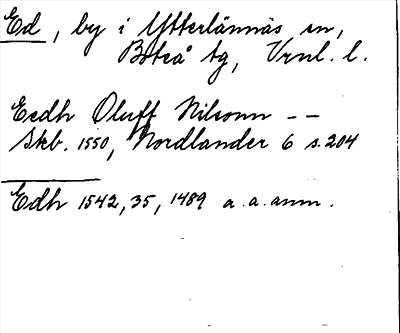 Ed, by i Ytterlännäs sn,
Boteå tg, Vrnl. l.
Eedh Oluff Nilsonn --
Skb. 1550, Nordlander 6 s. 204
Edh 1542, 35, 1489 a. a. anm.